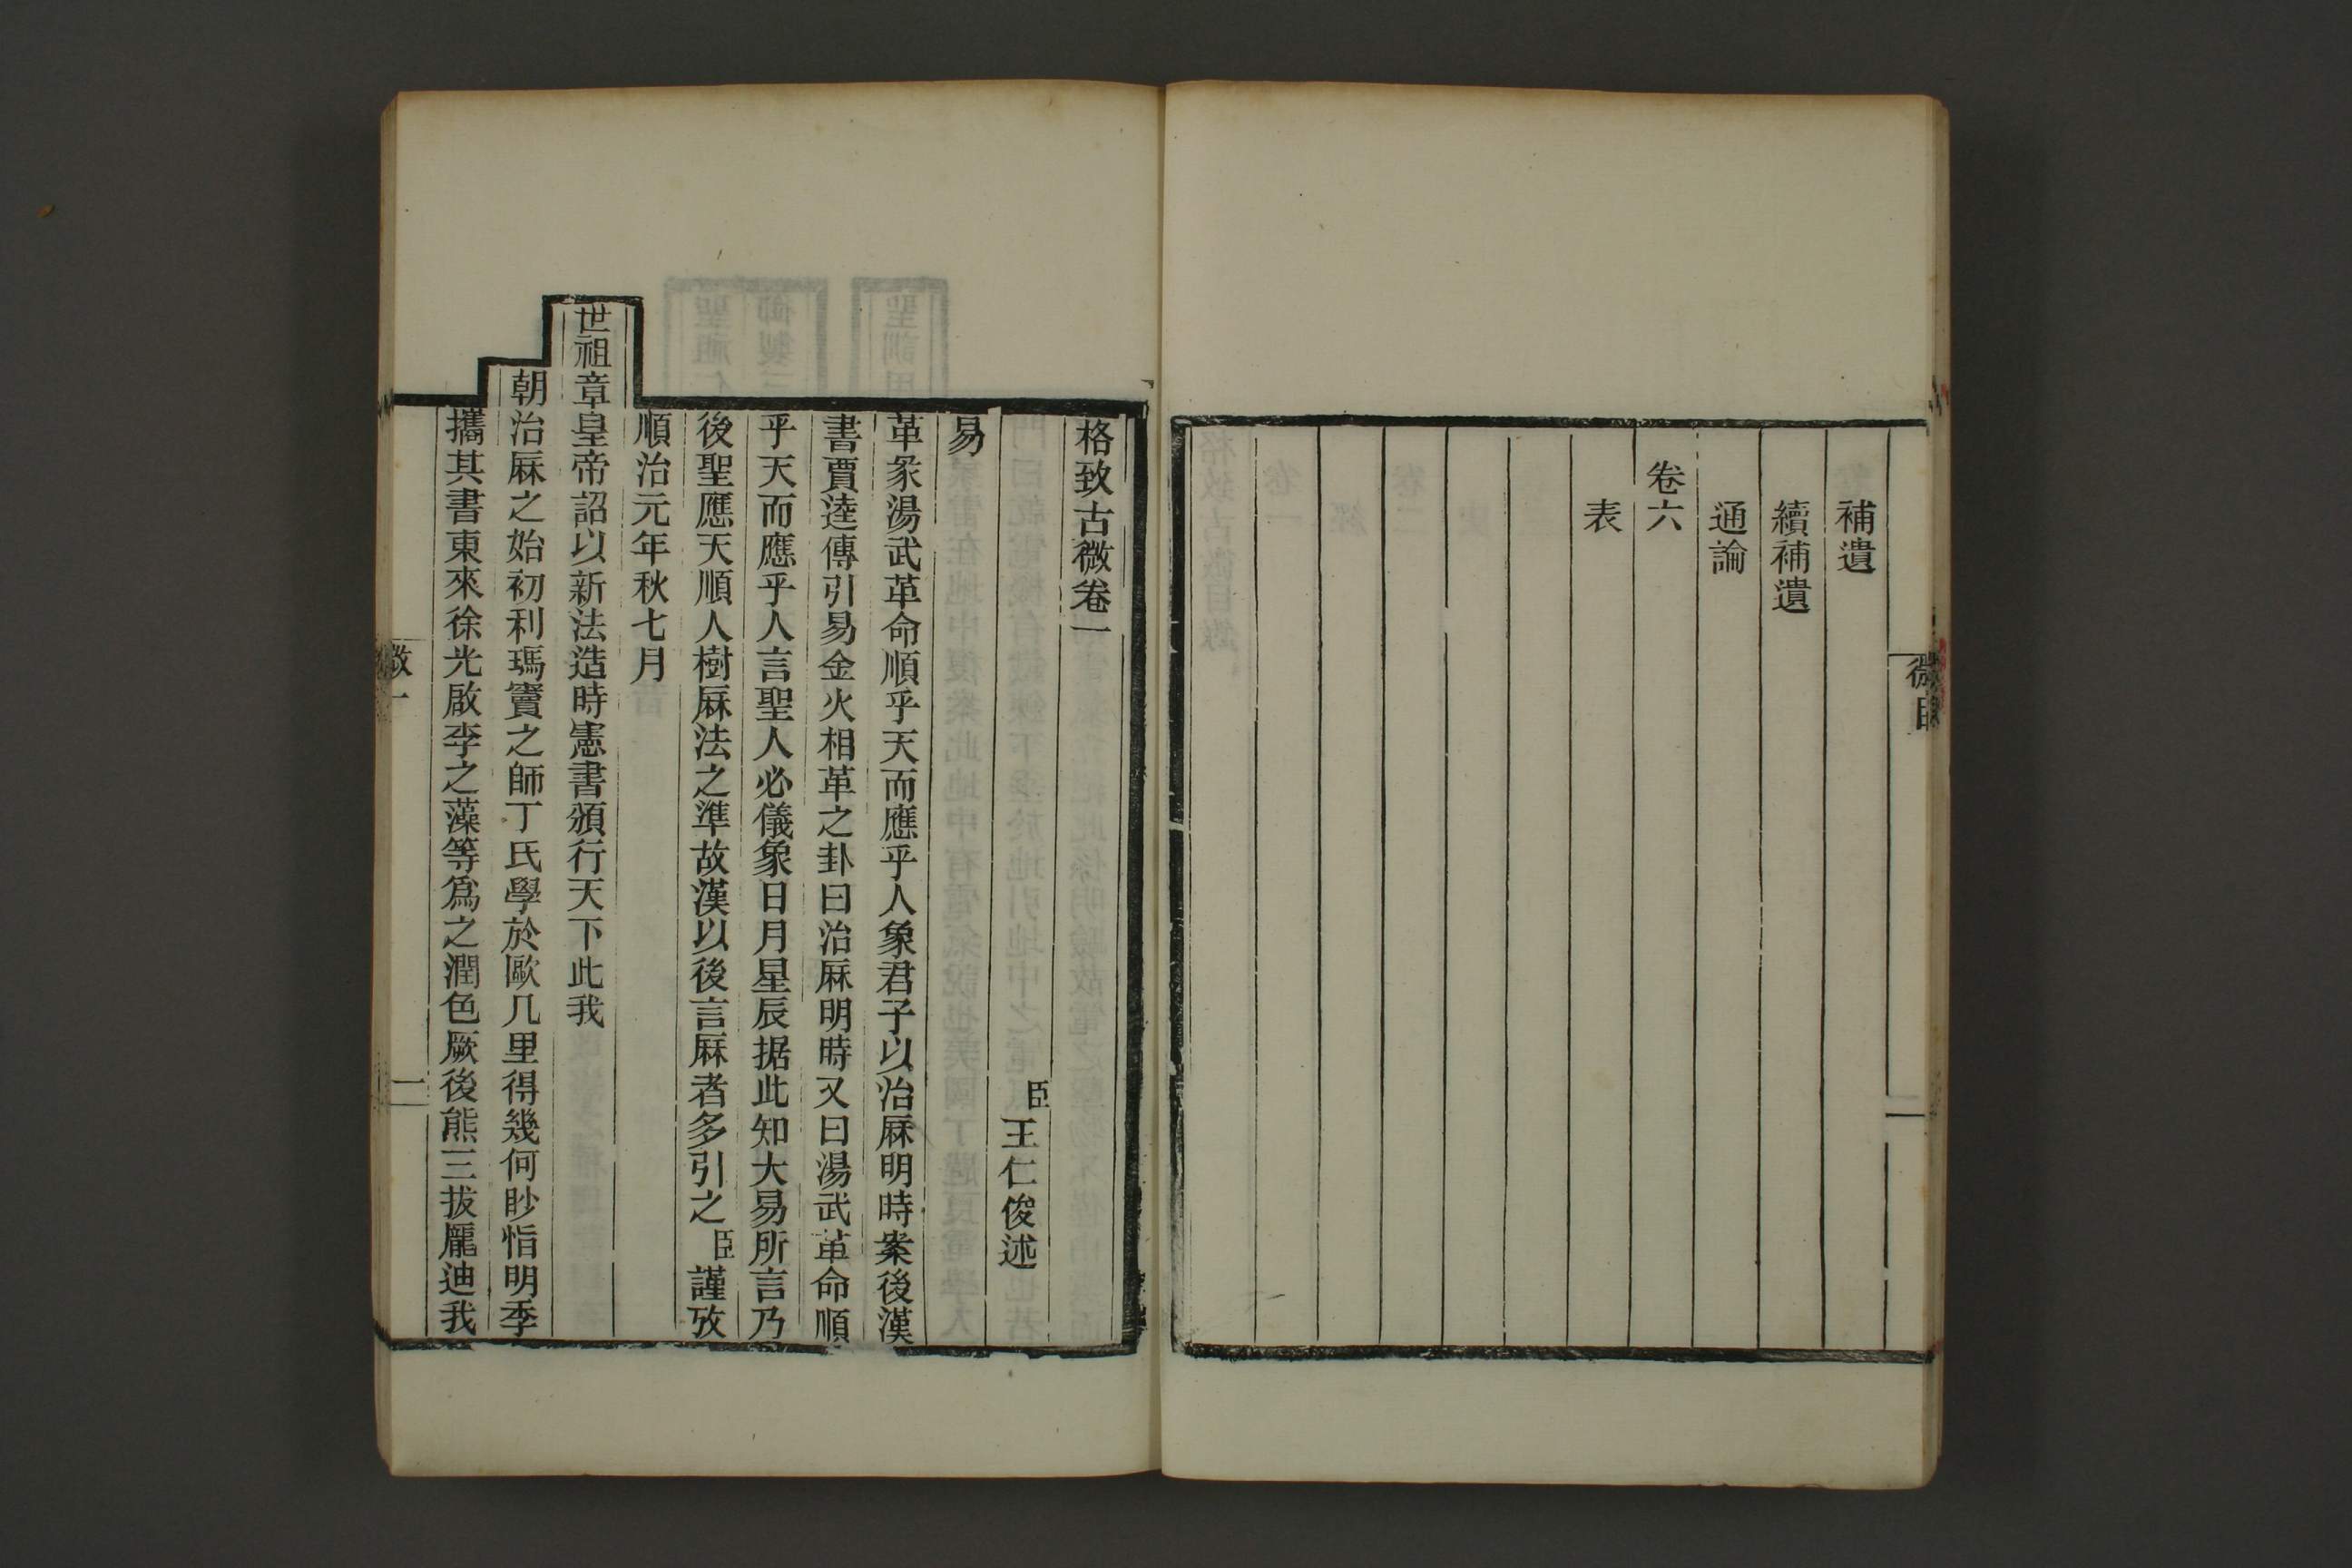 補遺
續補遺
通論
卷六
表
微目
二
格致古微卷一
臣王仁俊述
易
革彖湯武革命順乎天而應乎人象君子以治厤明時案後漢
書賈逵傳引易金火相革之卦曰治厤明時又曰湯武革命順
乎天而應乎人言聖人必儀象日月星辰据此知大易所言乃
後聖應天順人樹厤法之準故漢以後言厤者多引之臣謹攷
順治元年秋七月
世祖章皇帝詔以新法造時憲書頒行天下此我
朝治厤之始初利瑪竇之師丁氏學於歐几里得幾何眇恉明季
攜其書東來徐光啟李之藻等爲之潤色厥後熊三拔龎迪我
微一
一